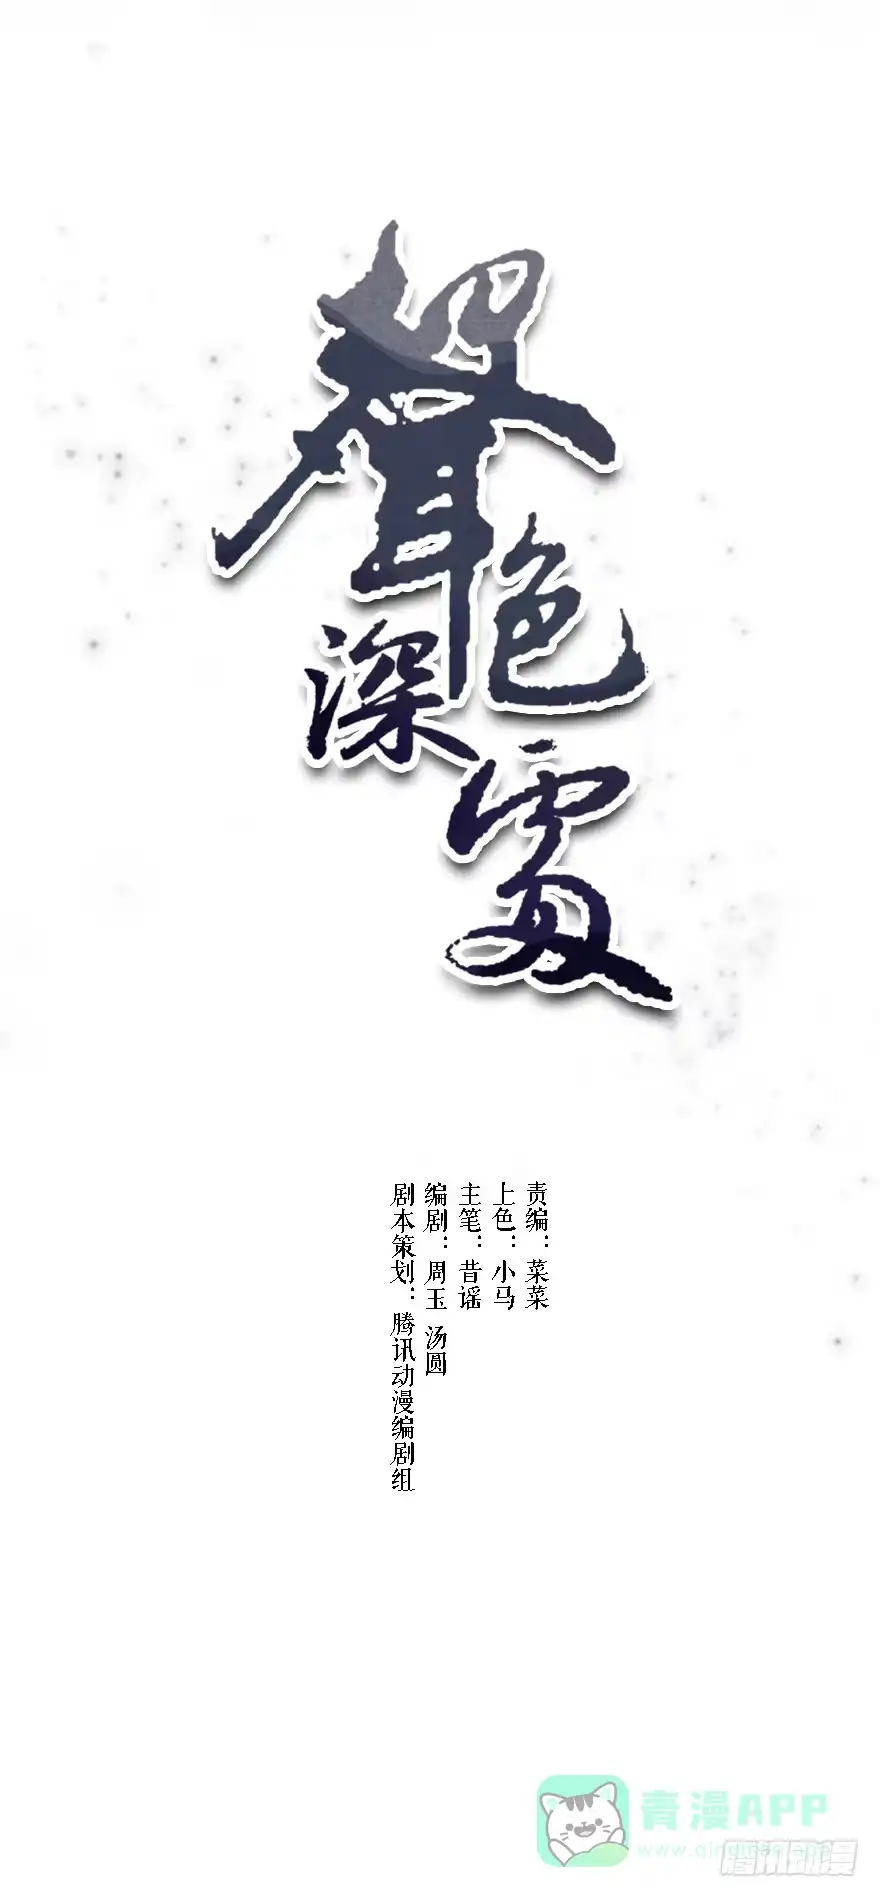 聲色深處
责编：菜菜
上色：小马
主笔：昔谣
编剧：周玉 汤圆
剧本策划：腾讯动漫编剧组
青漫APP
腾讯动漫